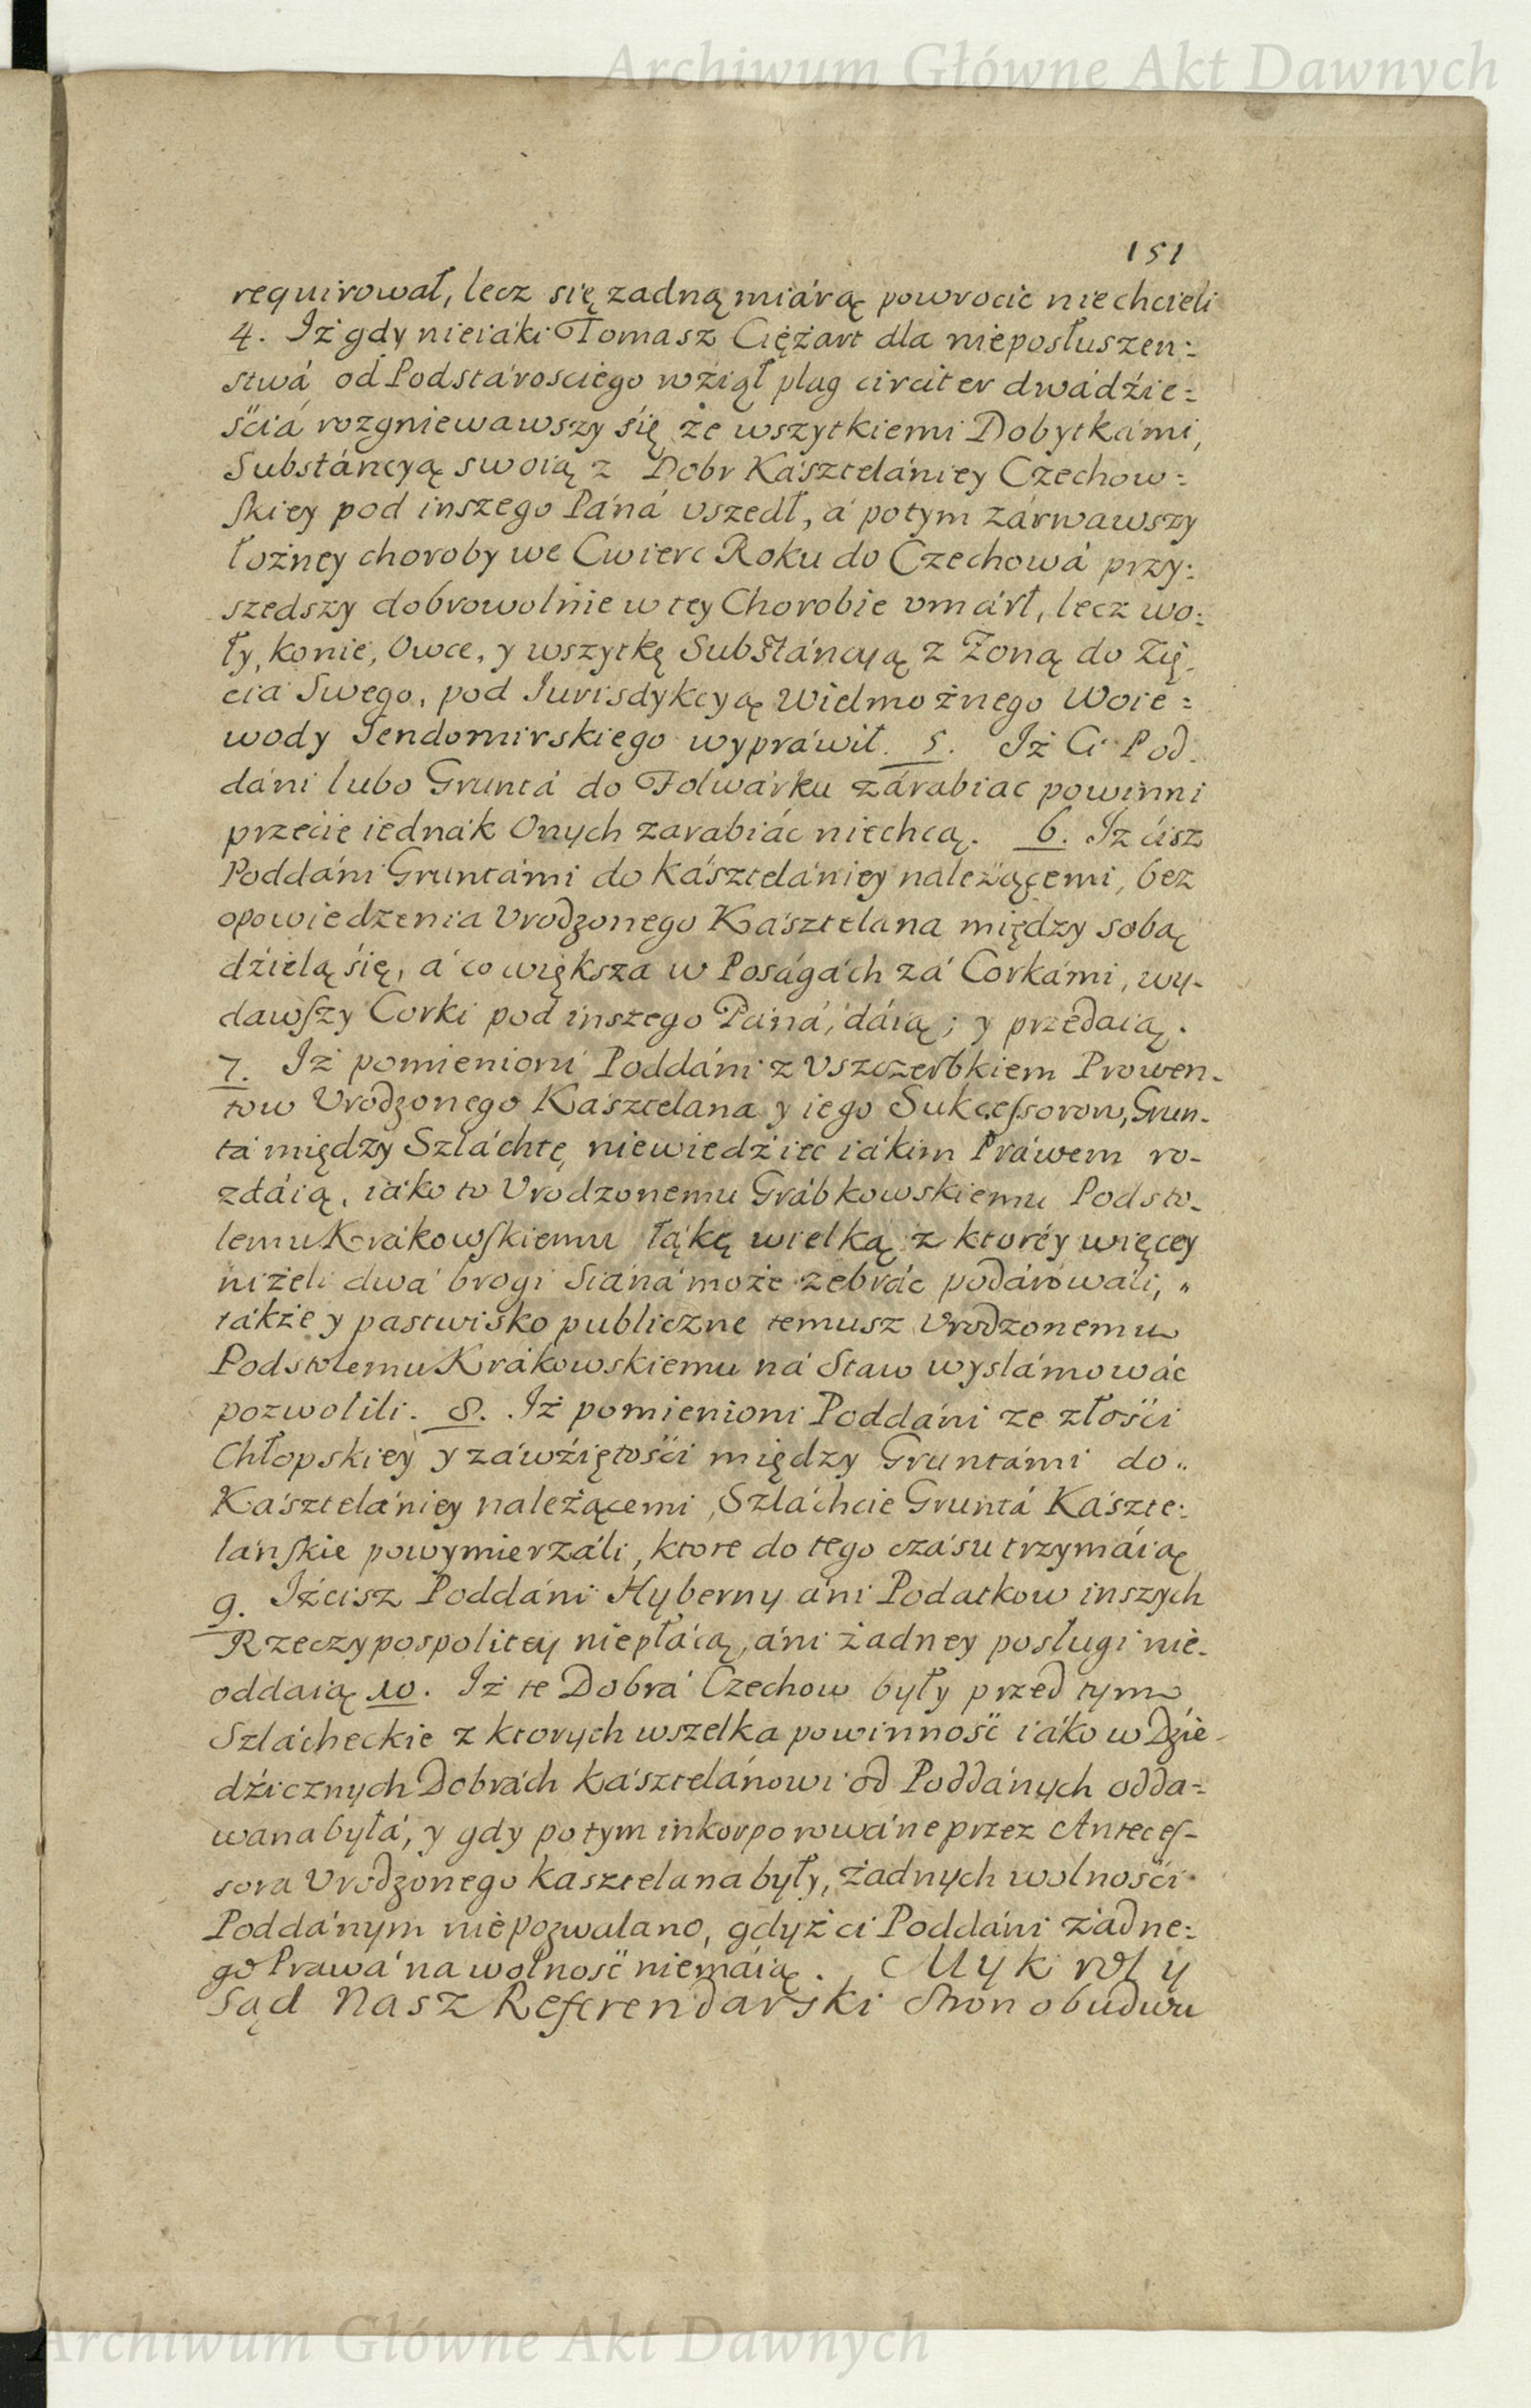 Archiwum Główne Akt Dawnych
151
requirował, lecz się zadną miárą powrocic niechcieli
4. Iż gdy nieiáki Tomasz Ciężart dla nieposłuszen:
stwá od Podstárosciego wźiął plag circiter dwádźie:
śćiá rozgniewawszy śię że wszytkiemi Dobytkámi,
Substáncyą swoią z Dobr Kásztelániey Czechow:
skiey pod inszego Páná vszedł, á potym zárwawszy
łożney choroby we Cwierc Roku do Czechowá przy:
szedszy dobrowolnie w tey Chorobie vmárł, lecz wo:
ły, konie, Owce, y wszytkę Substáncyą z Żoną do Zię-
cia Swego, pod Iurisdykcyą Wielmożnego Woie:
wody Sendomirskiego wypráwił. 5. Iż Ci Pod-
dáni lubo Gruntá do Folwárku zárabiac powinni
przećie iednák Onych zarabiác niechcą. 6. Iż ćisz
Poddáni Gruntámi do Kásztelániey należącemi, bez
opowiedzenia Vrodzonego Kásztelana między sobą
dźielą śię, á co większa w Poságách zá Corkámi, wy-
dawszy Corki pod inszego Páná, dáią; y przedaią.
7. Iż pomienioni Poddáni z Vszczerbkiem Prowen-
tow Vrodzonego Kásztelana y iego Sukcessorow, Grun-
tá między Szláchtę niewiedźiec iákim Práwem ro-
zdáią, iáko to Vrodzonemu Grábkowskiemu Podsto-
lemu Krákowskiemu łąkę wielką z ktoréy więcey
niżeli dwá brogi Siáná może zebrác podárowáli,
tákże y pastwisko publiczne temusz Vrodzonemu
Podstolemu Krákowskiemu ná Staw wyslámowác
pozwolili. 8. Iż pomienioni Poddáni ze złośći
Chłopskiey y záwźiętośći między Gruntámi do
Kásztelániey należącemi, Szláchcie Gruntá Kászte:
lánskie powymierzáli, ktore do tego czásu trzymáią
9. Iż cisz Poddáni Hyberny áni Podatkow inszych
Rzeczypospolitey niepłácą, áni żadney posługi nie-
oddaią 10. Iż te Dobrá Czechow były przed tym
Szlácheckie z ktorych wszelka powinność iáko w Dźie-
dźicznych Dobrách Kásztelánowi od Poddánych odda:
wana byłá, y gdy potym inkorporowáne przez Anteces-
sora Vrodzonego kasztelana były, żadnych wolnośći
Poddánym niepozwalano, gdyż ci Poddáni żadne:
go Prawá na wolność niemáią. My Krol y
Sąd Nasz Referendarski Stron obudwu
Archiwum Główne Akt Dawnych